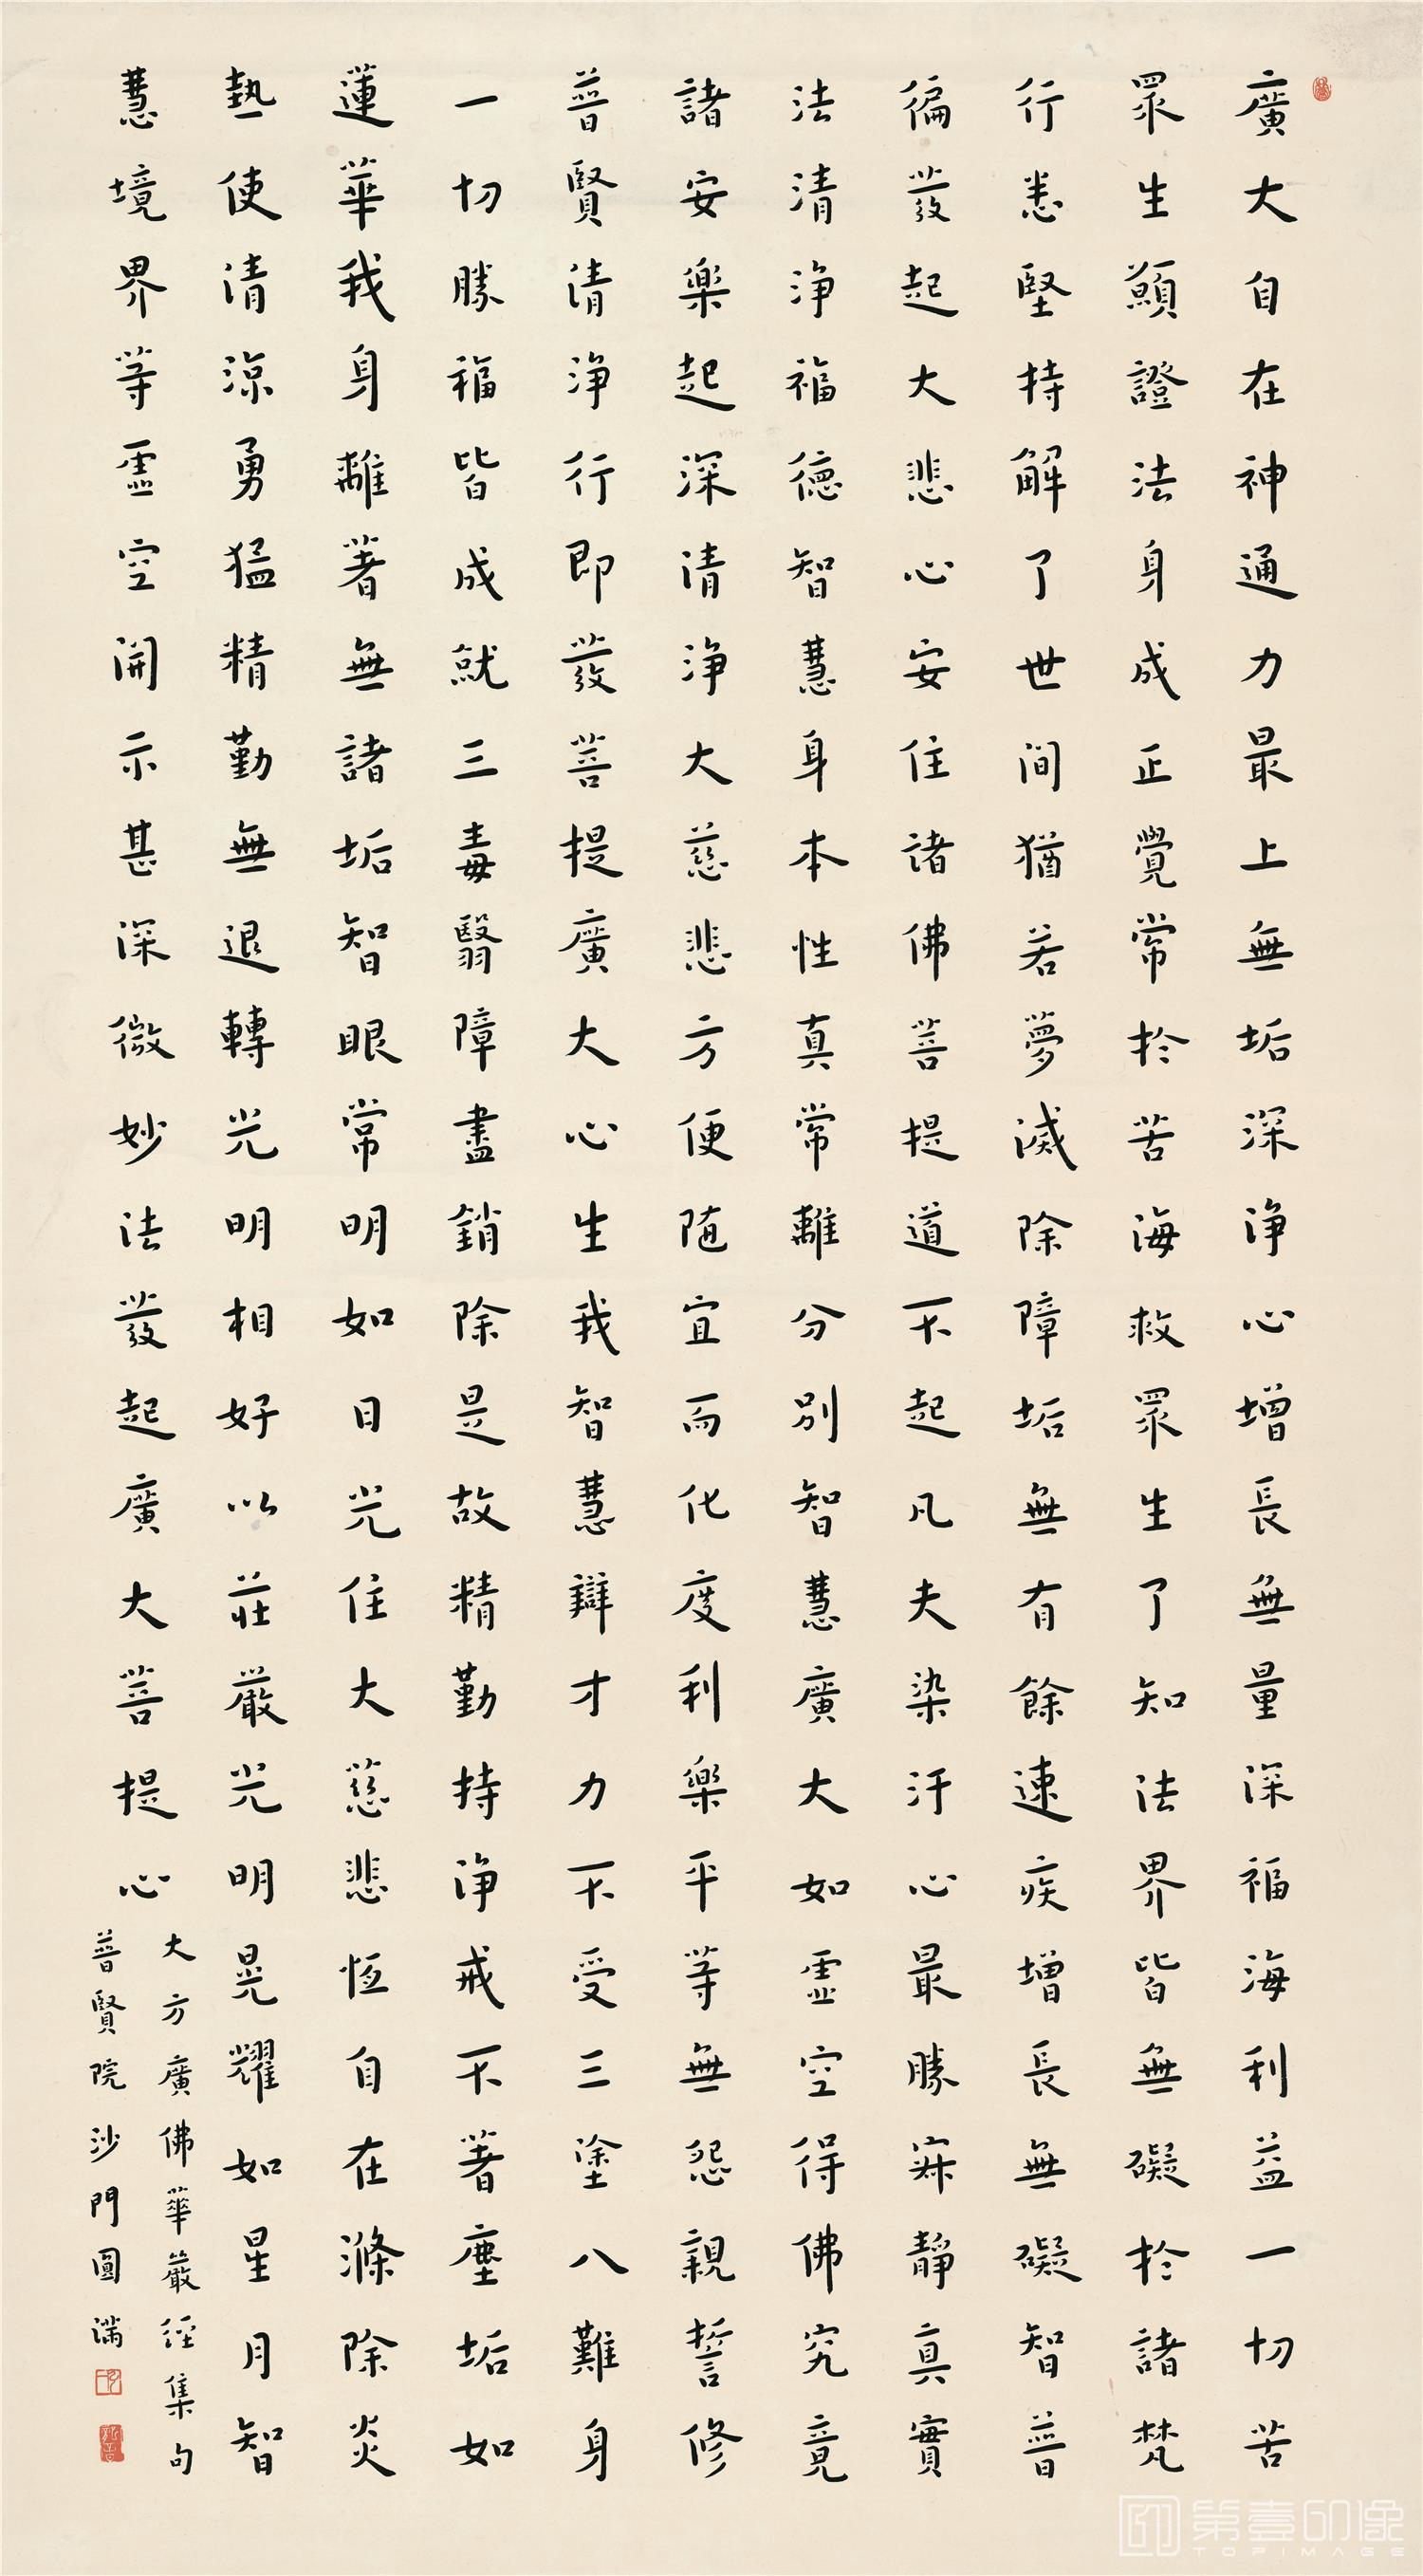 廣大自在神通力最上無垢深淨心增長無量深福海利益一切苦
眾生願證法身成正覺常於苦海救眾生了知法界皆無礙於諸梵
行悉堅持解了世間猶若夢滅除障垢無有餘速疾增長無礙智普
徧發起大悲心安住諸佛菩提道不起凡夫染汙心最勝寂靜真實
法清淨福德智慧身本性真常離分別智慧廣大如虛空得佛究竟
諸安樂起深清淨大慈悲方便隨宜而化度利樂平等無怨親誓修
普賢清淨行即發菩提廣大心生我智慧辯才力不受三塗八難身
一切勝福皆成就三毒翳障盡銷除是故精勤持淨戒不著塵垢如
蓮華我身離著無諸垢智眼常明如日光住大慈悲恆自在滌除炎
熱使清涼勇猛精勤無退轉光明相好以莊嚴光明晃耀如星月智
慧境界等虛空開示甚深微妙法發起廣大菩提心
大方廣佛華嚴經集句
普賢院沙門圓滿
第壹印像
TOPIMAGE